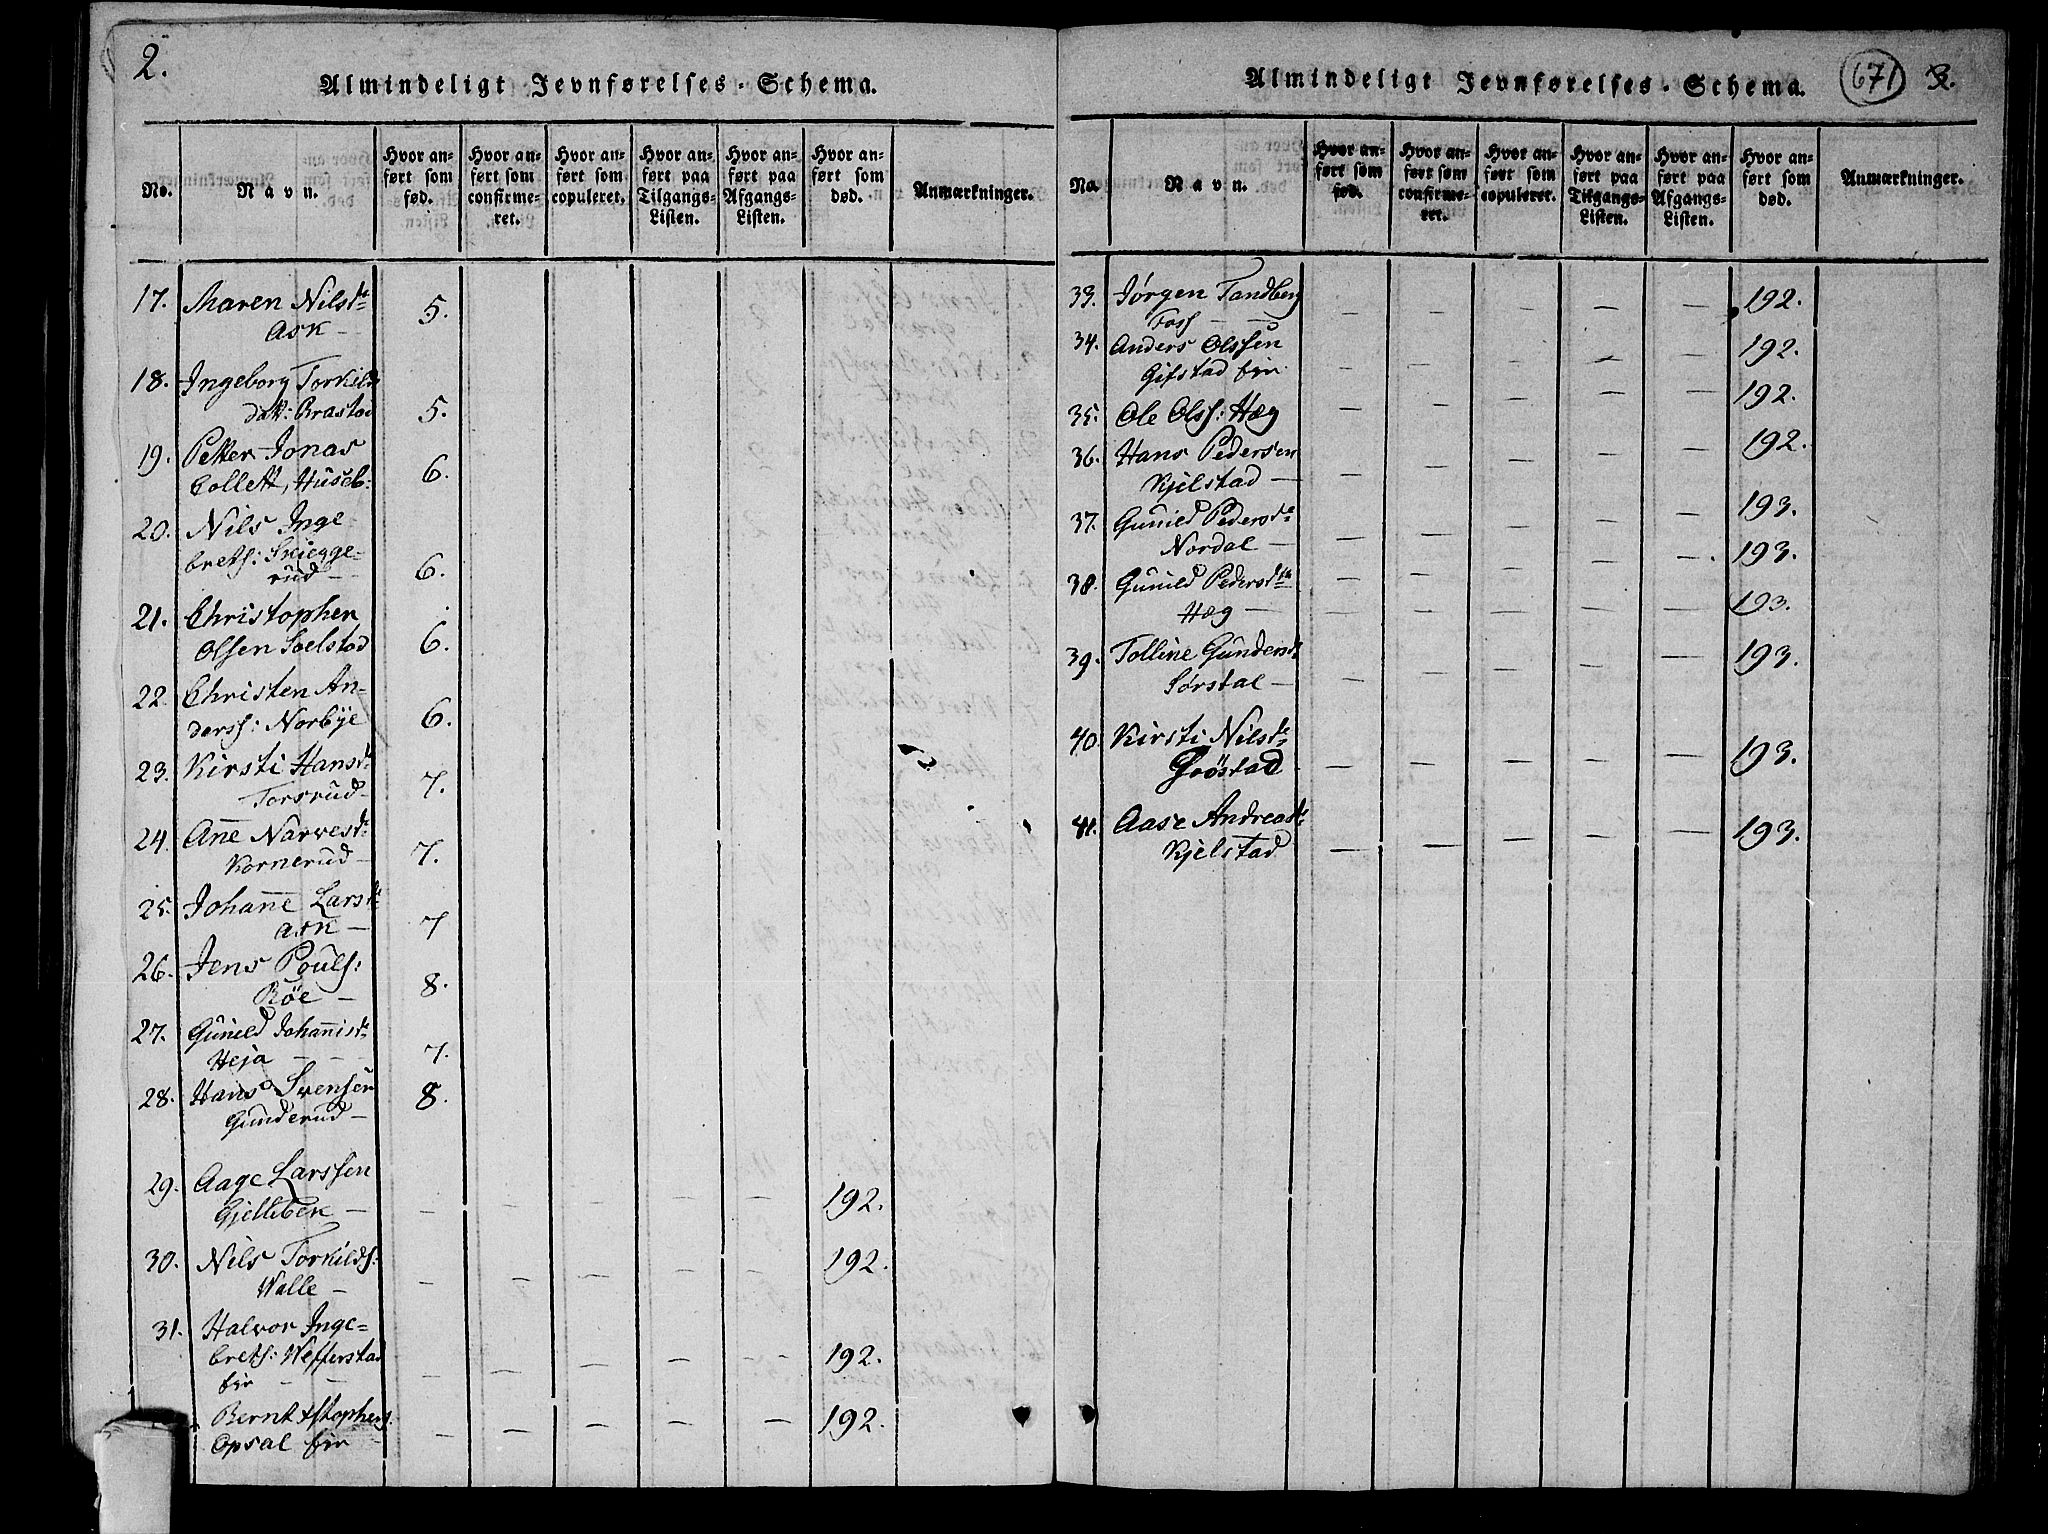 2.
Almindeligt Jevnførelses-Schema.
No.
Navn.
Hvor an-
ført som
fød.
Hvor an-
ført som
confirme-
ret.
Hvor an-
ført som
copuleret.
Hvor an-
ført paa
Tilgangs-
Listen.
Hvor an-
ført paa
Afgangs-
Listen.
Hvor an-
ført som
død.
Anmærkninger.
17. Maren Nilsd:
Ask — 5.
18. Ingeborg Torkilds
datt: Brastad 5.
19. Petter Jonas
Collett, Huseb: 6.
20. Nils Inge
brets: Skiegge-
rud — 6.
21. Christopher
Olsen Soelstad 6.
22. Christen An-
derss: Norbye 6.
23. Kirsti Hansd:
Torsrud — 7.
24. Añe Narvesd:
Kornerud — 7.
25. Johañe Larsd:
Ask — 7
26. Jens Pouls:
Röe — 8.
27. Gunild Johañisd:
Heja — — 7.
28. Hans Svensen 8.
Gunderud —
29. Aage Larssen
Gjellebek — — — — — — 192.
30. Nils Torkilds:
Walle — — — — — — 192.
31. Halvor Inge-
brets: Wefferstad
fir — — — — — — — 192.
Bernt Xstophers.
Opsal fir — — — — — — 192.
Almindeligt Jevnførelses-Schema.
671
3.
No
Navn.
Hvor an-
ført som
fød.
Hvor an-
ført som
confirme-
ret.
Hvor an-
ført som
copuleret.
Hvor an-
ført paa
Tilgangs-
Listen.
Hvor an-
ført paa
Afgangs-
Listen.
Hvor an-
ført som
død.
Anmærkninger.
33. Jørgen Tandberg
Foss — — — — — — — 192.
34. Anders Olssen
Gifstad fir — — — — — 192.
35. Ole Olss: Hæg — — — — — 192.
36. Hans Pedersen
Kjelstad — — — — — — 192.
37. Gunild Pedersd:
Nordal — — — — — — 193.
38. Gunild Pedersd:
Hæg — — — — — — 193.
193.
39. Tolline Gundersd:
Sørstal — — — — — — 193.
40. Kirsti Nilsd:
Gröstad — — — — — 193.
41. Aase Andreasd:
Kjelstad — — — — — 193.